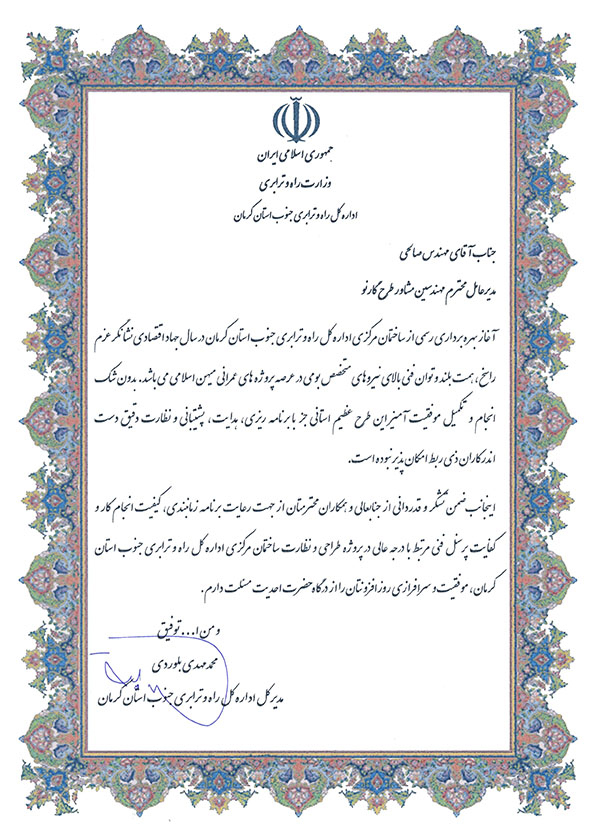 جمهوری اسلامی ایران
وزارت راه و ترابری
اداره کل راه و ترابری جنوب استان کرمان
جناب آقای مهندس صالحی
مدیرعامل محترم مهندسین مشاور طرح گارنو
آغاز بهره برداری رسمی از ساختمان مرکزی اداره کل راه و ترابری جنوب استان کرمان در سال جهاد اقتصادی نشانگر عزم
راسخ، همت بلند و توان فنی بالای نیروهای متخصص بومی در عرصه پروژه های عمرانی میهن اسلامی می باشد. بدون شک
انجام و تکمیل موفقیت آمیز این طرح عظیم استانی جز با برنامه ریزی، هدایت، پشتیبانی و نظارت دقیق دست
اندرکاران ذی ربط امکان پذیر نبوده است.
اینجانب ضمن تشکر و قدردانی از جنابعالی و همکاران محترمتان از جهت رعایت برنامه زمانبندی، کیفیت انجام کار و
کفایت پرسنل فنی مرتبط با درجه عالی در پروژه طراحی و نظارت ساختمان مرکزی اداره کل راه و ترابری جنوب استان
کرمان، موفقیت و سرافرازی روز افزونتان را از درگاه حضرت احدیت مسئلت دارم.
و من ا... توفیق
محمد مهدی بلوردی
مدیر کل اداره کل راه و ترابری جنوب استان کرمان